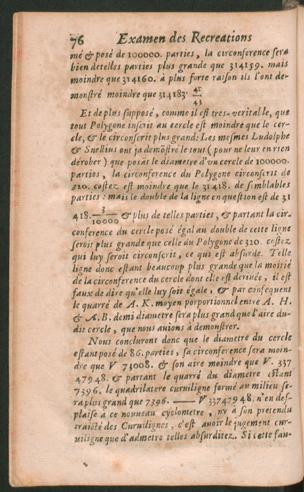 76 Examen des Recreations
mé & posé de 100000. parties, la circonference sera
bien de telles parties plus grande que 314159. mais
moindre que 314160. à plus forte raison ils l'ont de-
monstré moindre que 314183. 42/43
Et de plus supposé, comme il est tres-veritable, que
tout Polygone inscrit au cercle est moindre que le cer-
cle, & le circonscrit plus grand: Les mesmes Ludolphe
& Snellius ont ja demõstré le tout ( pour ne leur en rien
dérober ) que posãt le diametre d'un cercle de 100000.
parties, la circonference du Polygone circonscrit de
320. costez est moindre que le 31418. de semblables
parties: mais le double de la ligne en question est de 31
418. 3/10000 & plus de telles parties, & partant la cir-
conference du cercle posé égal au double de cette ligne
seroit plus grande que celle du Polygone de 320. costez
qui luy seroit circonscrit, ce qui est absurde. Telle
ligne donc estant beaucoup plus grande que la moitié
de la circonference du cercle dont elle est derivée, il est
faux de dire qu'elle luy soit égale, & par consequent
le quarré de A. K. moyen porportionnel entre A. H.
& A. B. demi diametre sera plus grand que l'aire du-
dit cercle, que nous avions à demonstrer.
Nous concluront donc que le diametre du cercle
estant posé de 86. parties, sa circonference sera moin-
dre que V 73008. & son aire moindre que V. 337
47948. & partant le quarré du diametre estant
7396. le quadrilatere curviligne formé au milieu se-
ra plus grand que 7396. —— V 33747948. n'en des-
plaise à ce nouveau cyclometre, ny à son pretendu
traicté des Curvilignes, c'est avoir le jugement cur-
viligne que d'admetre telles absurditez. Si cette fau-